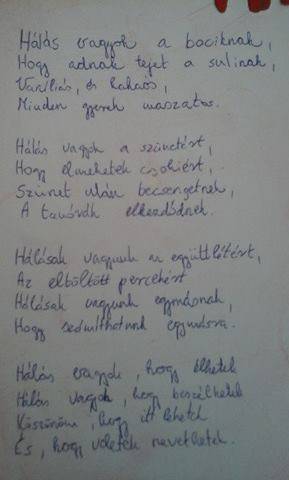 Hálás vagyok a bociknak,
Hogy adnak tejet a sulinak,
Vaníliás, és kakaós,
Minden gyerek maszatos.
Hálás vagyok a szünetért,
Hogy elmehetek csokiért,
Szünet után becsengetnek,
A tanórák elkezdődnek.
Hálásak vagyunk az együttlétért,
Az eltöltött percekért
Hálásak vagyunk egymásnak,
Hogy számíthatunk egymásra.
Hálás vagyok, hogy élhetek
Hálás vagyok, hogy beszélhetek
Köszönöm, hogy itt lehetek
És, hogy veletek nevethetek.